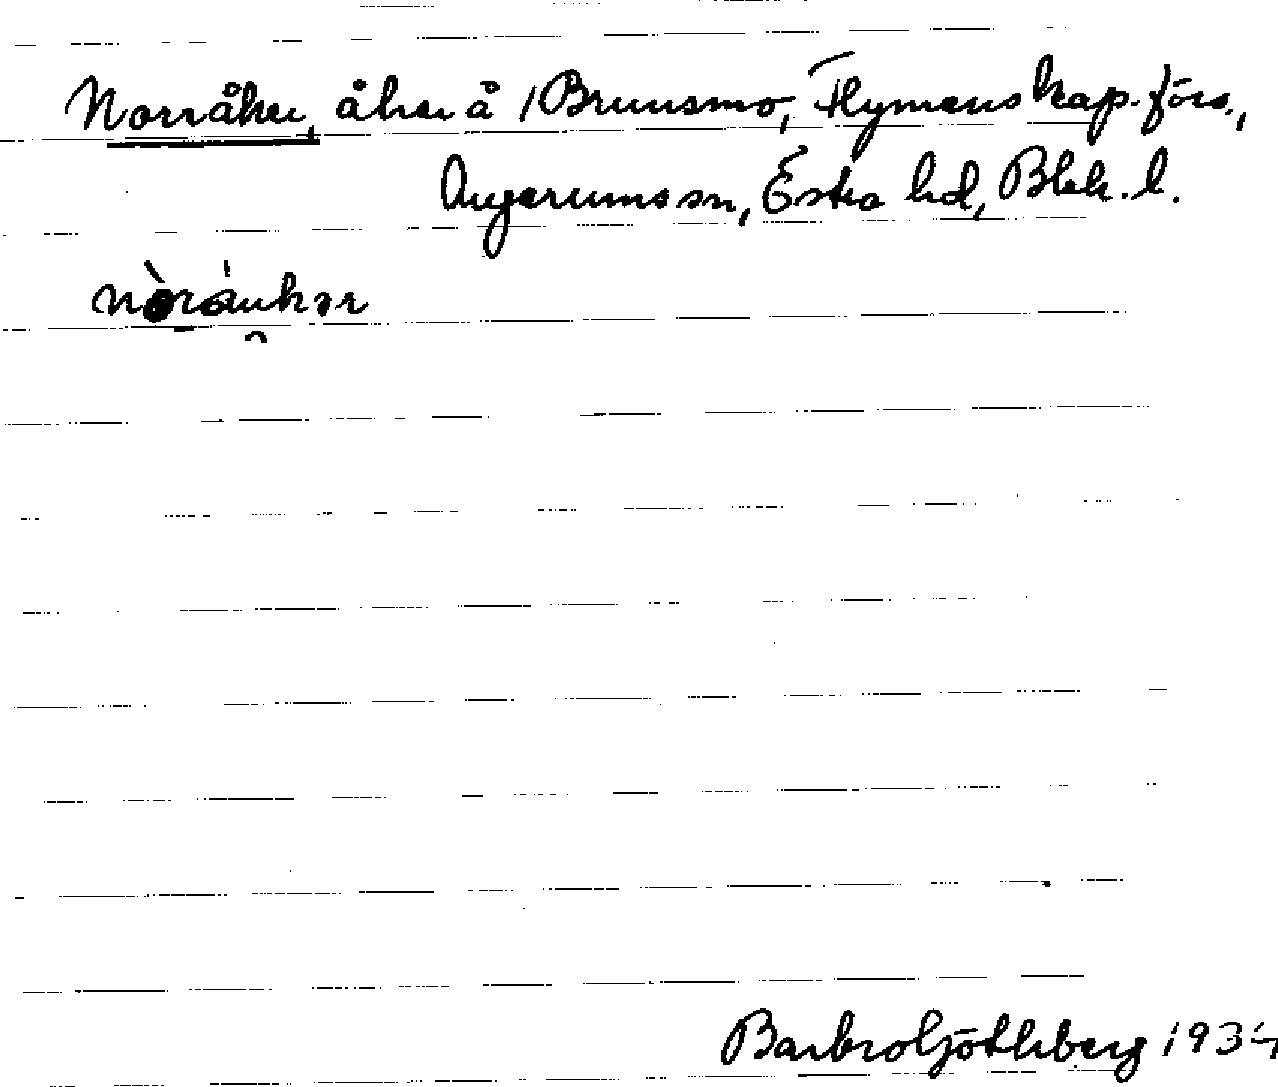 Norråker, åker å /Bruusmo, Flymens kap. förs.,
Augerums sn, Östra hd, Blek. l.
nòráukər
Barbro Götlberg 193